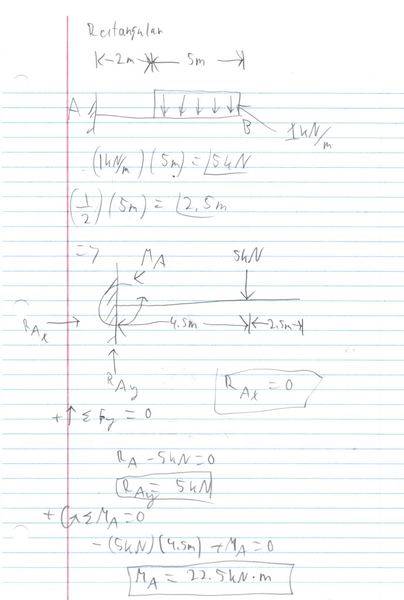 Rectangular
2m 5m
A B 1kN/m
(1kN/m)(5m) = 5kN
(1/2)(5m) = 2.5m
=>
M_A 5kN
R_Ax 4.5m 2.5m
R_Ay R_Ax = 0
+↑ ΣF_y = 0
R_A - 5kN = 0
R_Ay = 5kN
+ ΣM_A = 0
-(5kN)(4.5m) + M_A = 0
M_A = 22.5kN·m